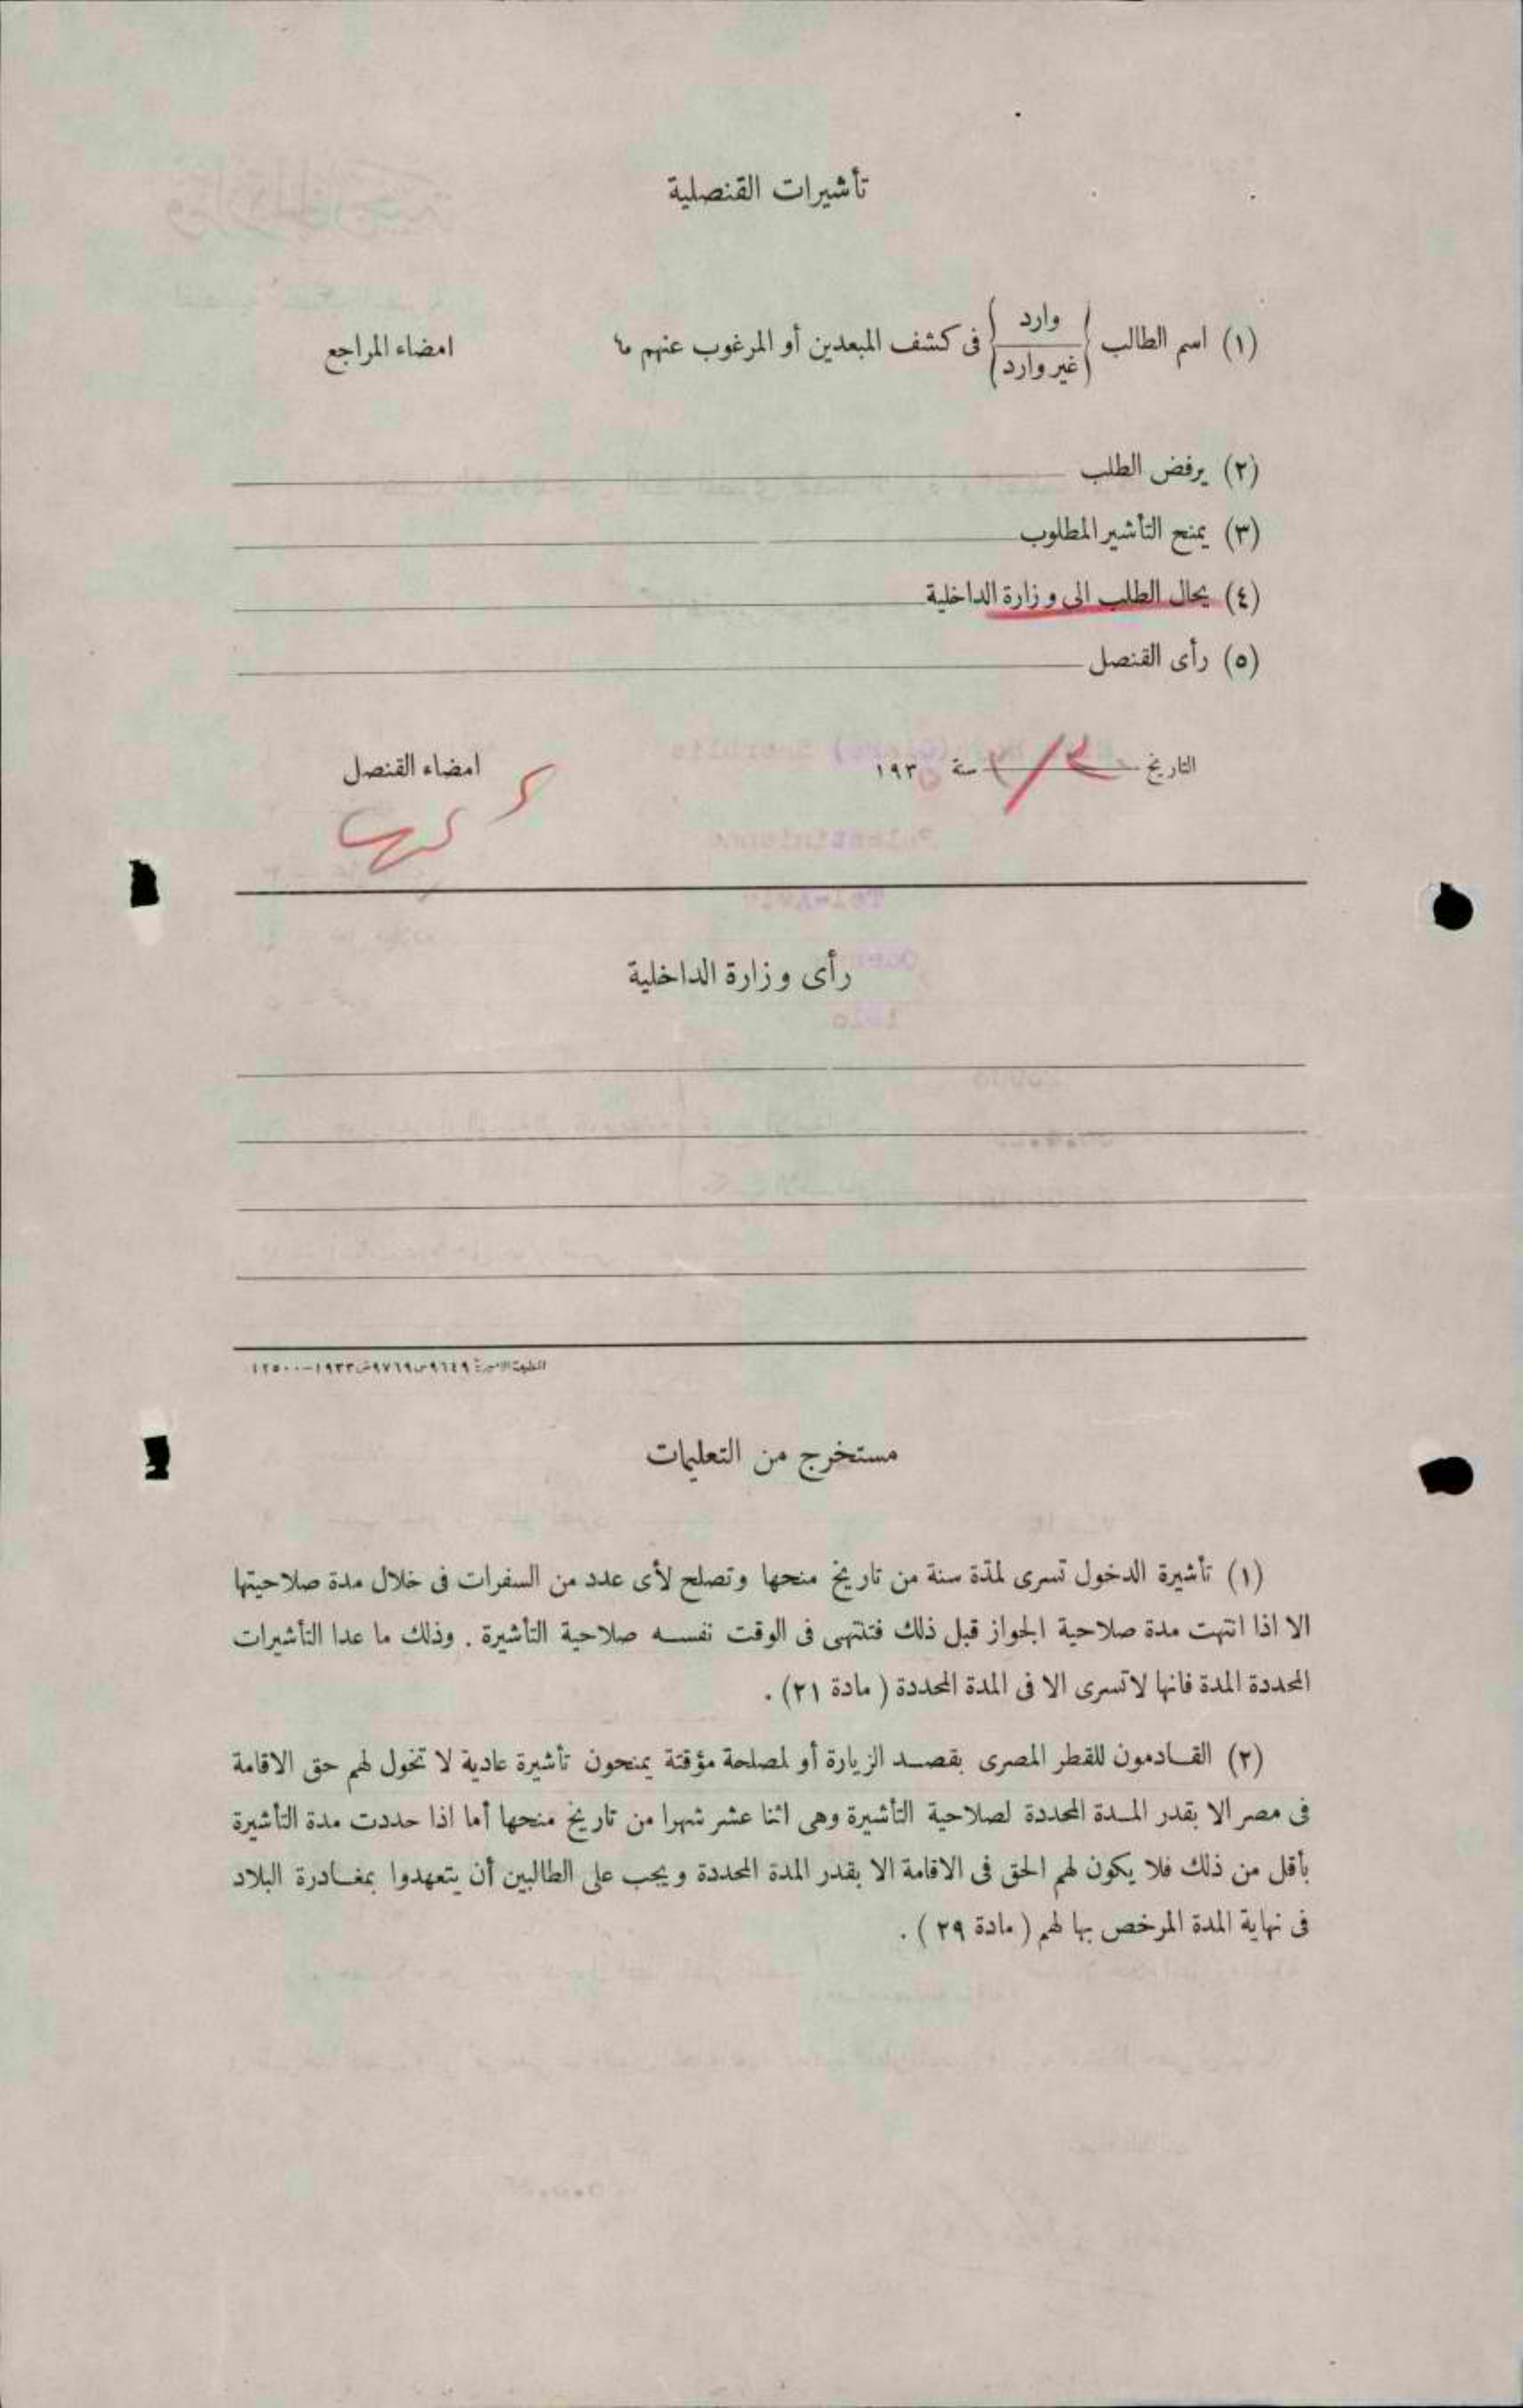 تأشيرات القنصلية
(١) اسم الطالب { وارد / غير وارد } فى كشف المبعدين أو المرغوب عنهم ما
امضاء المراجع
(٢) يرفض الطلب
(٣) يمنح التأشير المطلوب
(٤) يحال الطلب الى وزارة الداخلية
(٥) رأى القنصل
التاريخ سنة ١٩٣٥
امضاء القنصل
رأى وزارة الداخلية
المطبعة الاميرية ٩٦٤٩س٩٧٦٩ش١٩٣٣-١٢٥٠٠
مستخرج من التعليمات
(١) تأشيرة الدخول تسرى لمدّة سنة من تاريخ منحها وتصلح لأى عدد من السفرات فى خلال مدة صلاحيتها
الا اذا انتهت مدة صلاحية الجواز قبل ذلك فتنتهى فى الوقت نفسه صلاحية التأشيرة . وذلك ما عدا التأشيرات
المحددة المدة فانها لا تسرى الا فى المدة المحددة ( مادة ٢١ ) .
(٢) القادمون للقطر المصرى بقصد الزيارة أو لمصلحة مؤقتة يمنحون تأشيرة عادية لا تخول لهم حق الاقامة
فى مصر الا بقدر المدة المحددة لصلاحية التأشيرة وهى اثنا عشر شهرا من تاريخ منحها أما اذا حددت مدة التأشيرة
بأقل من ذلك فلا يكون لهم الحق فى الاقامة الا بقدر المدة المحددة ويجب على الطالبين أن يتعهدوا بمغادرة البلاد
فى نهاية المدة المرخص بها لهم ( مادة ٢٩ ) .